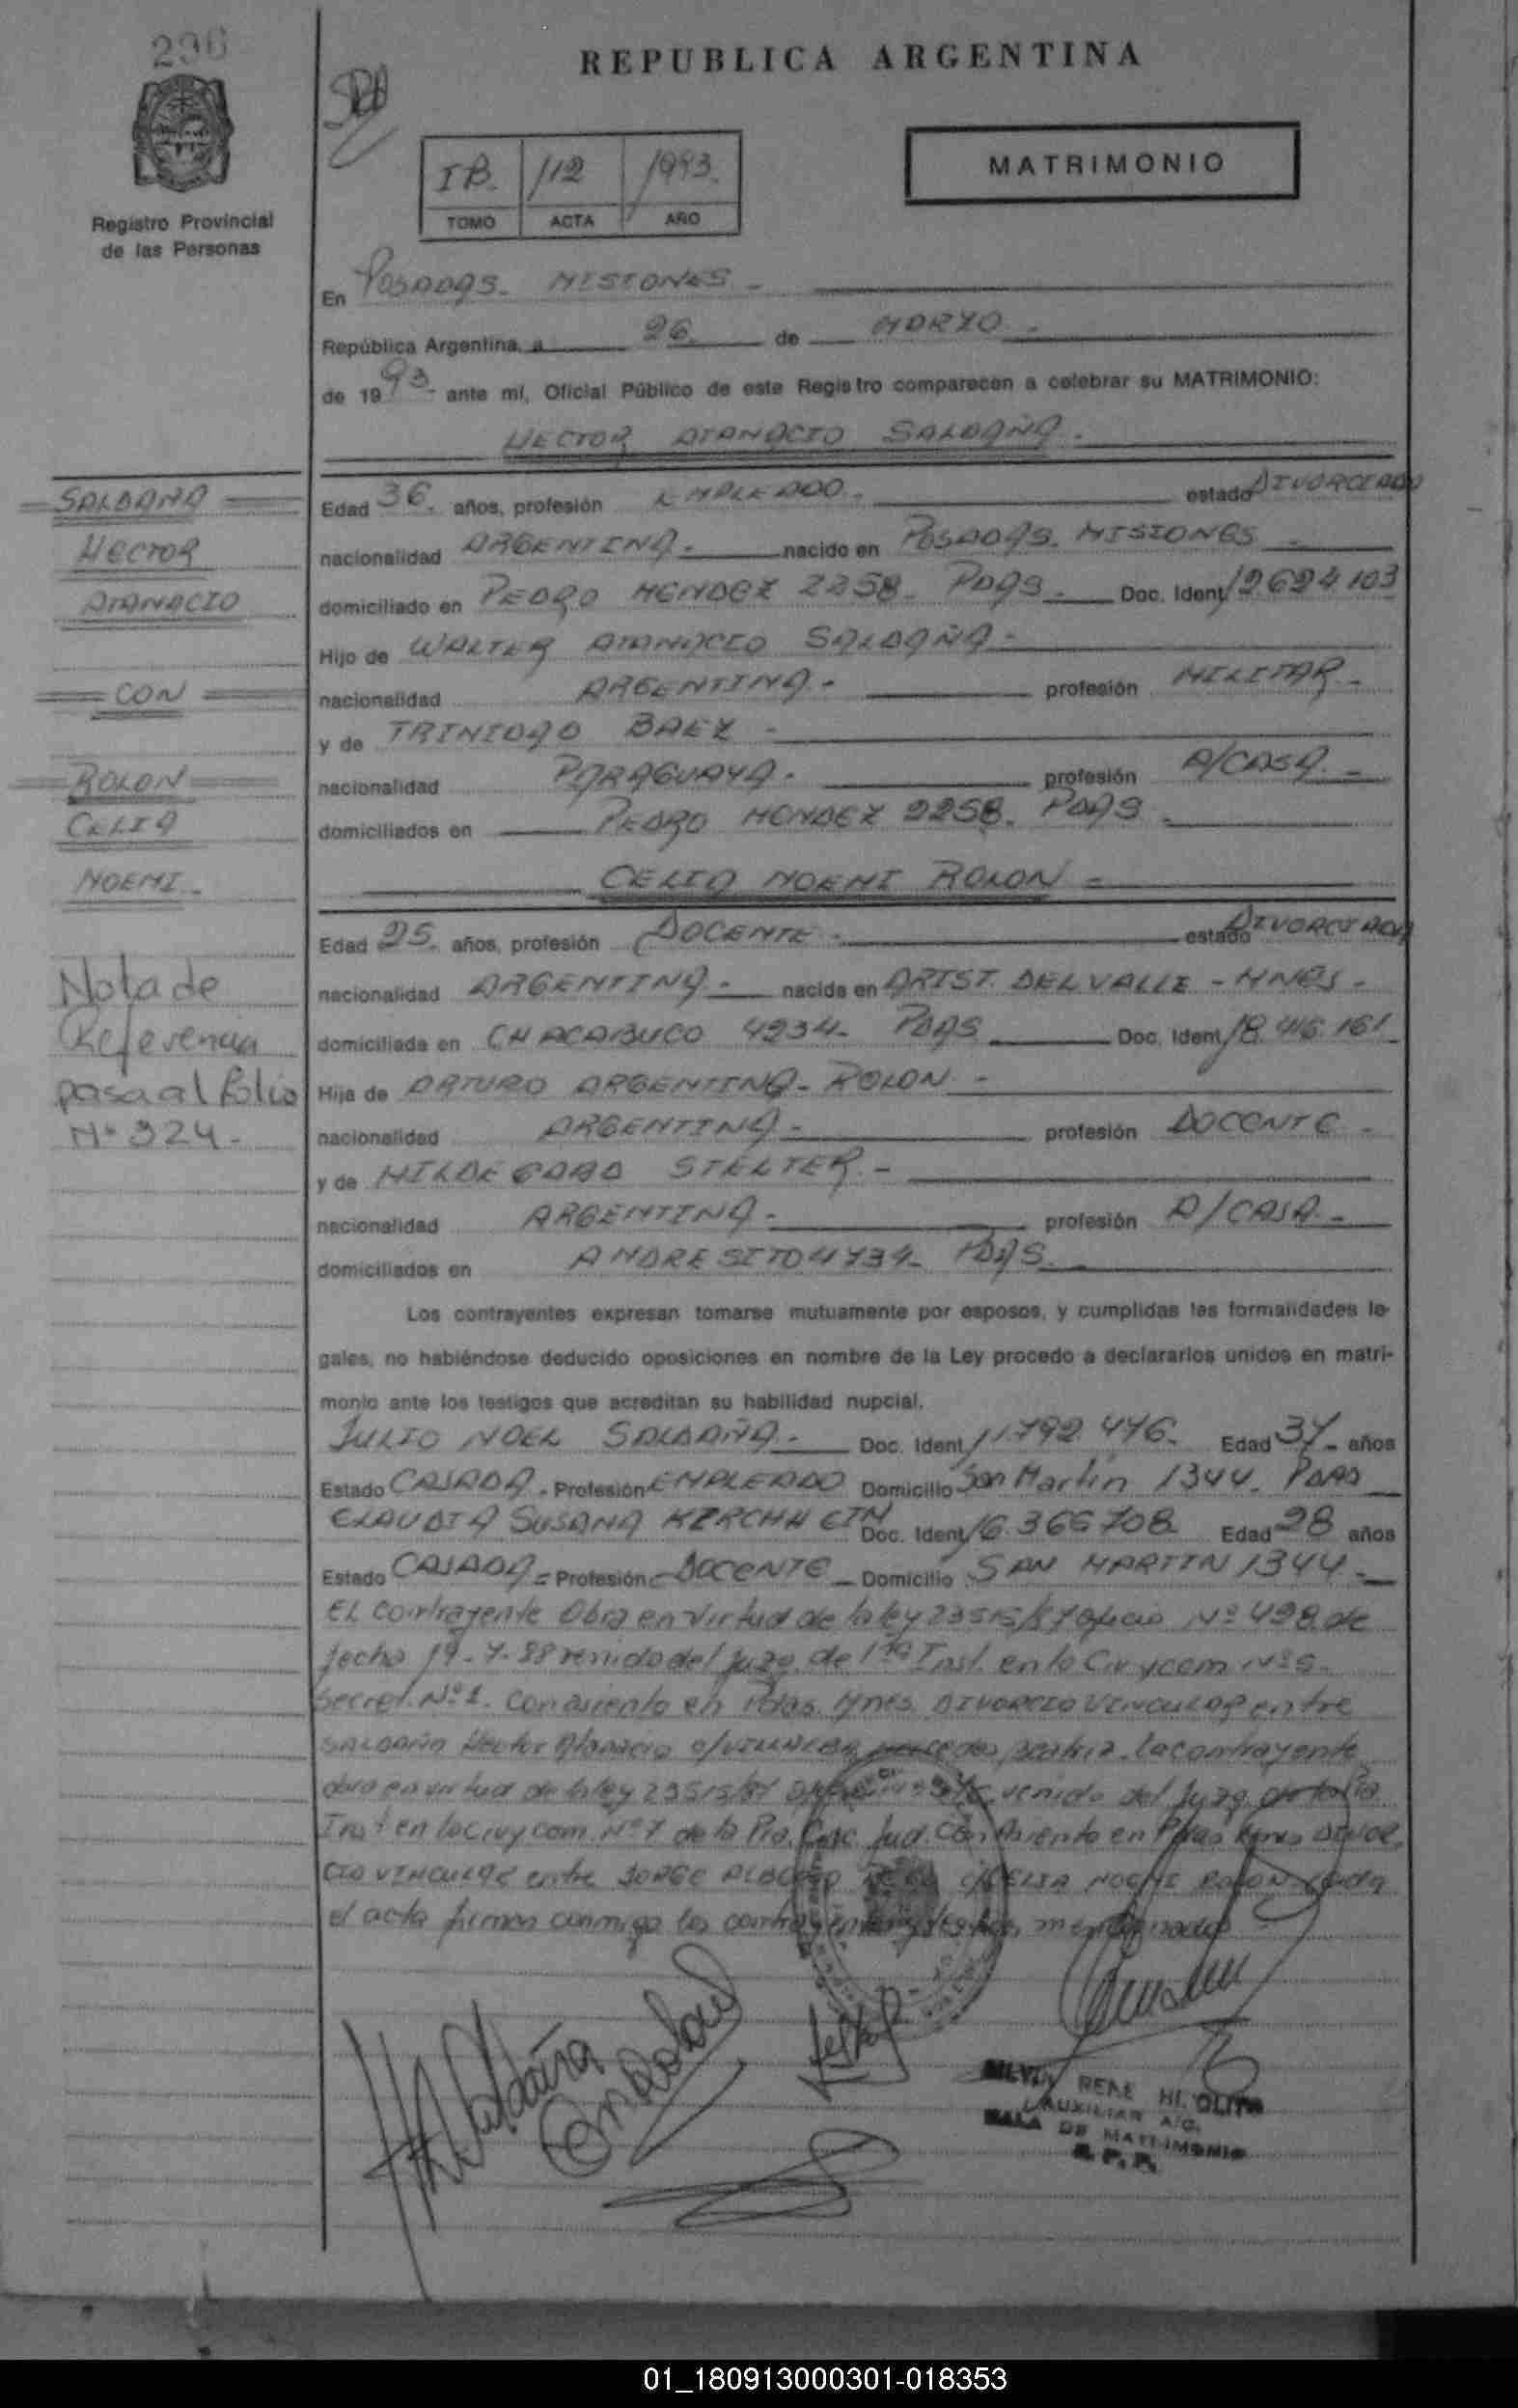 296
REPUBLICA ARGENTINA
Registro Provincial
de las Personas
IB. 112 1993.
TOMO ACTA AÑO
MATRIMONIO
En POSADAS. MISIONES -
República Argentina, a 26. de MARZO -
de 1993- ante mí, Oficial Público de este Registro comparecen a celebrar su MATRIMONIO:
HECTOR ATANACIO SALDAÑA.
SALDAÑA
HECTOR
ATANACIO
CON
ROLON
CELIA
NOEMI.-
Nota de
Referencia
pasa al folio
Nº 324-
Edad 36. años, profesión EMPLEADO. estado DIVORCIADO
nacionalidad ARGENTINA. nacido en POSADAS. MISIONES -
domiciliado en PEDRO MENDEZ 2258. PDAS. Doc. Ident. 12.624.103
Hijo de WALTER ATANACIO SALDAÑA.
nacionalidad ARGENTINA. profesión MILITAR.-
y de TRINIDAD BAEZ -
nacionalidad PARAGUAYA. profesión A/CASA.-
domiciliados en PEDRO MENDEZ 2258. PDAS
CELIA NOEMI ROLON -
Edad 25. años, profesión DOCENTE. estado DIVORCIADA
nacionalidad ARGENTINA. nacida en ARIST. DEL VALLE - MNES-
domiciliada en CHACABUCO 4234- PDAS Doc. Ident. 18.416.161
Hija de ARTURO ARGENTINO ROLON -
nacionalidad ARGENTINA. profesión DOCENTE -
y de HILDEGARD STELTER.-
nacionalidad ARGENTINA. profesión A/CASA.-
domiciliados en ANDRESITO 4734- PDAS.
Los contrayentes expresan tomarse mutuamente por esposos, y cumplidas las formalidades le-
gales, no habiéndose deducido oposiciones en nombre de la Ley procedo a declararlos unidos en matri-
monio ante los testigos que acreditan su habilidad nupcial.
JULIO NOEL SALDAÑA. Doc. Ident. 11.792.476. Edad 37- años
Estado CASADA. Profesión EMPLEADO Domicilio San Martín 1344. PDAS
CLAUDIA SUSANA KIRCHHEIM Doc. Ident. 16.366.708 Edad 28 años
Estado CASADA - Profesión DOCENTE Domicilio SAN MARTIN 1344.-
El contrayente Obra en virtud de la ley 23515/87 oficio Nº 498 de
fecha 19-7-88 venido del Juzg. de 1ra Inst. en lo Civ y com Nº 5.
Secret. Nº 1. Con asiento en Pdas. Mnes. DIVORCIO VINCULAR entre
SALDAÑA Hector Atanacio c/ Mercedes Beatriz. la contrayente
obra en virtud de la ley 23515/87 venido del Juzg. de 1ra
Inst en lo civ y com. Nº 7 de la Pra. Circ. Jud. Con Asiento en Pdas Mnes DIVOR
CIO VINCULAR entre JORGE ALBERTO c/CELIA NOEMI ROLON Leida
el acta firman conmigo los contrayentes y testigos mencionados
H. Saldaña
SILVIA RENE HI. OLITA
AUXILIAR A/C.
SALA DE MATRIMONIO
R. P. P.
01_180913000301-018353